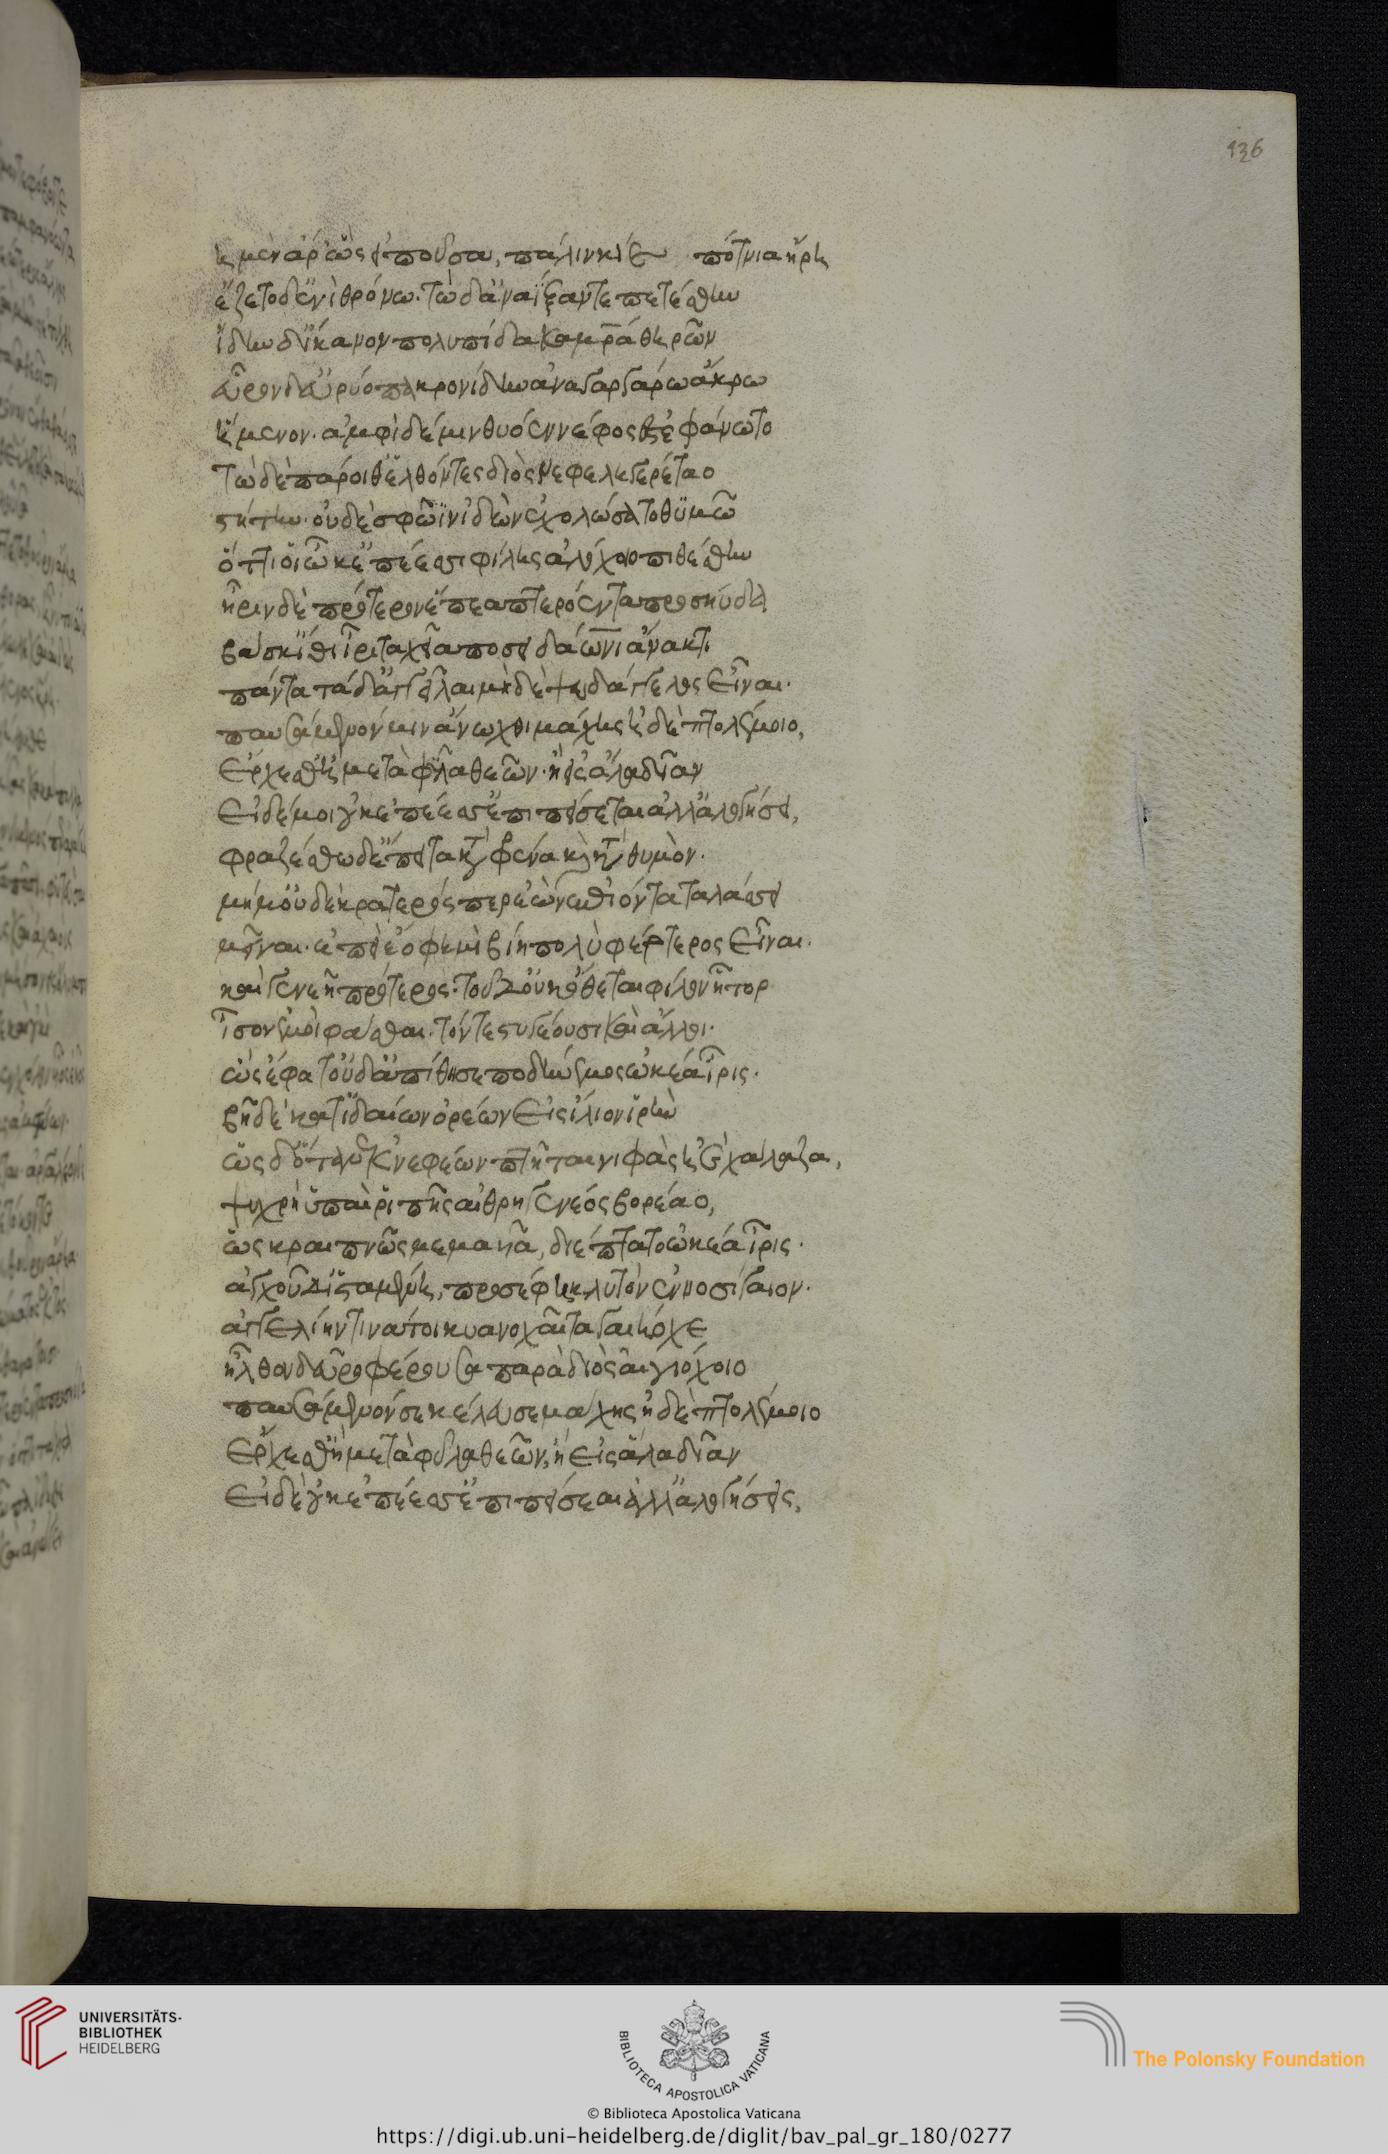 136
ἡ μὲν ἄρ ὣς εἰποῦσα, πάλιν κίε πότνια ἥρη
ἕζετο δ ἐνὶ θρόνω· τὼ δ ἀΐξαντε πετέσθην
ἴδην δ ἵκανον πολυπίδακα μρ̅α θηρῶν
εὗρον δ εὐρύοπα κρονίδην ἀνα γαργάρω ἄκρω
ἥμενον· ἀμφὶ δέ μιν θυόεν νέφος ἐστεφάνωτο
τὼ δὲ πάροιθ ἐλθόντες διὸς νεφεληγερέταο
στήτην· οὐδὲ σφωϊν ἰδὼν ἐχολώσατο θϋμῶ
ὅττι οἱ ὦκ ἐπέεσσι φίλης ἀλόχοιο πιθέσθην
ἶριν δὲ πρότερον ἔπεα πτερόεντα προσηύδα
βάσκ ἴθι ἶρι ταχεῖα ποσειδάωνι ἄνακτι
πάντα τάδ ἀγγεῖλαι μὴ δὲ ψευδάγγελος εἶναι·
παυσάμενόν μιν ἄνωχθι μάχης ἠδὲ πτολέμοιο,
ἔρχεσθ ἢ μετὰ φῦλα θεῶν· ἢ εἰς ἅλα δῖαν
εἰ δέ μοι οὐκ ἐπέεσσ ἐπιπείσεται ἀλλ ἀλογήσει,
φραζέσθω δ ἔπειτα κατὰ φρένα καὶ κατὰ θυμὸν·
μή μ οὐδὲ κρατερός περ ἐὼν ἐπιόντα ταλάσσει
μεῖναι· ἐπεὶ ἑό φημὶ βίη πολὺ φέρτερος εἶναι·
καὶ γενεῆ πρότερος· τοῦ δ οὐκ ὄθεται φίλον ἦτορ
ἶσον ἐμοὶ φάσθαι· τόν τε στυγέουσι καὶ ἄλλοι·
ὣς ἔφατ οὐδ ἀπίθησε ποδήνεμος ὠκέα ἶρις·
βῆ δὲ κατ ἰδαίων ὀρέων εἰς ἴλιον ἱρὴν
ὡς δ ὅτ ἂν ἐκ νεφέων πτῆται νιφὰς ἠὲ χάλαζα,
ψυχρὴ ὑπαὶ ῥιπῆς αἰθρηγενέος βορέαο,
ὣς κραιπνῶς μεμαυῖα, διέπτατο ὠκέα ἶρις·
ἀγχοῦ δ ἱσταμένη, προσέφη κλυτὸν ἐννοσίγαιον·
ἀγγελίην τινά τοι κυανοχαῖτα γαιήοχε
ἦλθον δεῦρο φέρουσα παρὰ διὸς αἰγιόχοιο
παυσάμενόν σε κέλευσε μάχης ἠδὲ πτολέμοιο
ἔρχεσθ ἢ μετὰ φῦλα θεῶν, ἢ εἰς ἅλα δῖαν
εἰ δέ οἱ οὐκ ἐπέεσσ ἐπιπείσεαι ἀλλ ἀλογήσεις,
UNIVERSITÄTS-
BIBLIOTHEK
HEIDELBERG
BIBLIOTECA APOSTOLICA VATICANA
The Polonsky Foundation
© Biblioteca Apostolica Vaticana
https://digi.ub.uni-heidelberg.de/diglit/bav_pal_gr_180/0277